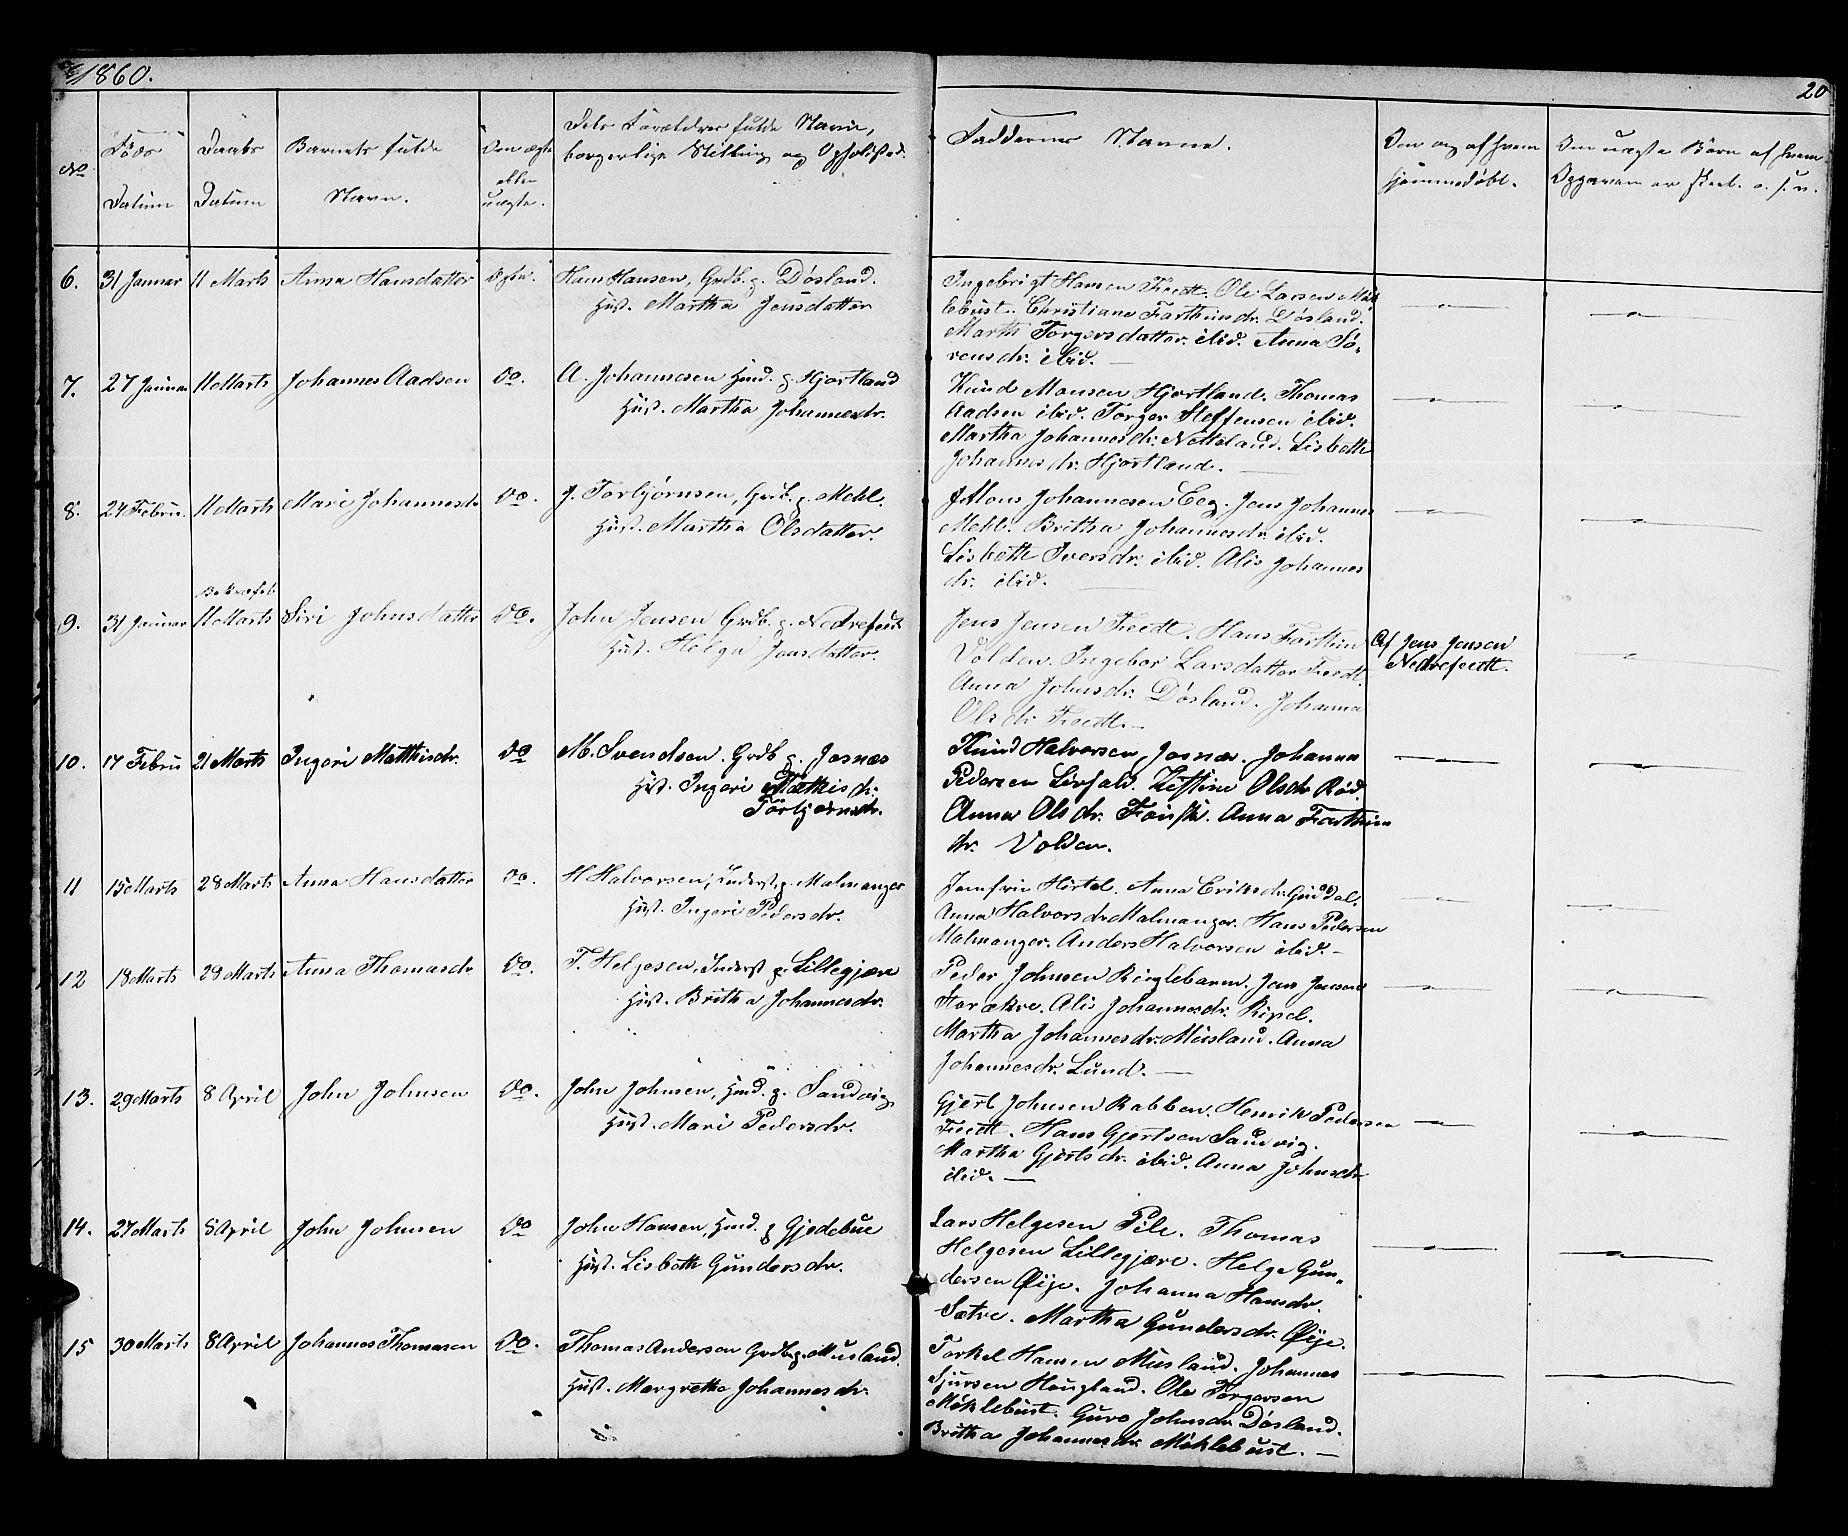 1860.
20
No
Føds
Datum
Daabs
Datum
Barnets fulde
Navn.
Om ægte
eller
uægte.
Dets Forældres fulde Navne,
borgerlige Stilling og Opholdsted.
Faddernes Navne.
Om og af hvem
hjemmedøbt.
Om uægte Børn af hvem
Opgaven er skeet. o. s. v.
6. 31 Januar 11 Marts Anna Hansdatter Ægte. Hans Hansen, Grdb. g. Døsland.
Hust. Martha Jensdatter
Ingebrigt Hansen Feedt. Ole Larsen Møk
lebust. Christiane Farthinsdr. Døsland.
Marth Torgersdatter ibid. Anna Sø-
rensdr. ibid. —
7. 27 Januar 11 Marts Johannes Aadsen Do. A. Johannesen Hmd. g. Hjortland
Hust. Martha Johannesdr.
Knud Monsen Hjortland. Thomas
Aadsen ibid. Torger Steffensen ibid.
Martha Johannesdr. Netteland. Lisbeth
Johannesdr. Hjortland. —
8. 24 Febru. 11 Marts Mari Johannesdr Do. J. Torbjørnsen, Grdb. g. Mehl.
Hust. Martha Olsdatter.
Mons Johannesen Eeg. Jens Johannes
Mehl. Britha Johannesdr. ibid.
Lisbeth Iversdr. ibid. Alis Johannes
dr. ibid. —
Bekræftet
9. 31 Januar 11 Marts Siri Johnsdatter Do. John Jensen Grdb. g. Nedrefeedt
Hust. Helga Jonsdatter.
Jens Jensen Feedt. Hans Farthin
Volden. Ingebor Larsdatter Feedt.
Anna Johnsdr. Døsland. Johanna
Olsdr. Feedt. —
Af Jens Jensen
Nedrefeedt.
10. 17 Febru 21 Marts Ingeri Matthisdr. Do M. Svendsen. Grdb g. Josnæs
Hust. Ingeri Mathisdr.
Torbjørnsdr.
Knud Halvorsen, Josnæs. Johanna
Pedersen Livfald. Kistine Olsdr. Rød.
Anna Olsdr. Anna Farthins
dr. Volden.
11 15 Marts 28 Marts Anna Hansdatter Do. H Halvorsen, Inderst, g. Malmanger
Hust. Ingeri Pedersdr.
Jomfru Hirtel. Anna Eriksdr. Guddal.
Anna Halvorsdr Malmanger. Hans Pedersen
Malmanger. Anders Halvorsen ibid. —
12 18 Marts 28 Marts Anna Thomasdr Do. T. Helgesen, Inderst g. Lillegjære
Hust. Britha Johannesdr.
Peder Johnsen Ringlebarm. Jens Jensen
Storækre. Alis Johannesdr.
Martha Johannesdr. Musland. Anna
Johannesdr. Lund. —
13. 29 Marts 8 April John Johnsen Do. John Johnsen, Hmd. g. Sandvig
Hust. Mari Pedersdr.
Gjert Johnsen Rabben. Henrik Pedersen
Feedt. Hans Gjertsen Sandvig.
Martha Gjertsdr. ibid. Anna Johnsdr
ibid. —
14. 27 Marts 8 April John Johnsen Do John Hansen, Hmd. g Gjedebue
Hust. Lisbeth Gundersdr.
Lars Helgesen Pile. Thomas
Helgesen Lillegjære. Helge Gun-
dersen Øije. Johanna Hansdr.
Sætre. Martha Gundersdr. Øije.
15 30 Marts 8 April Johannes Thomasen Do. Thomas Andersen Grdb. g. Musland.
Hust. Margrethe Johannesdr.
Torkel Hansen Musland. Johannes
Sjursen Haugland. Ole Torgersen
Møklebust. Guro Johnsdr. Døsland.
Britha Johannesdr. Møklebust. —